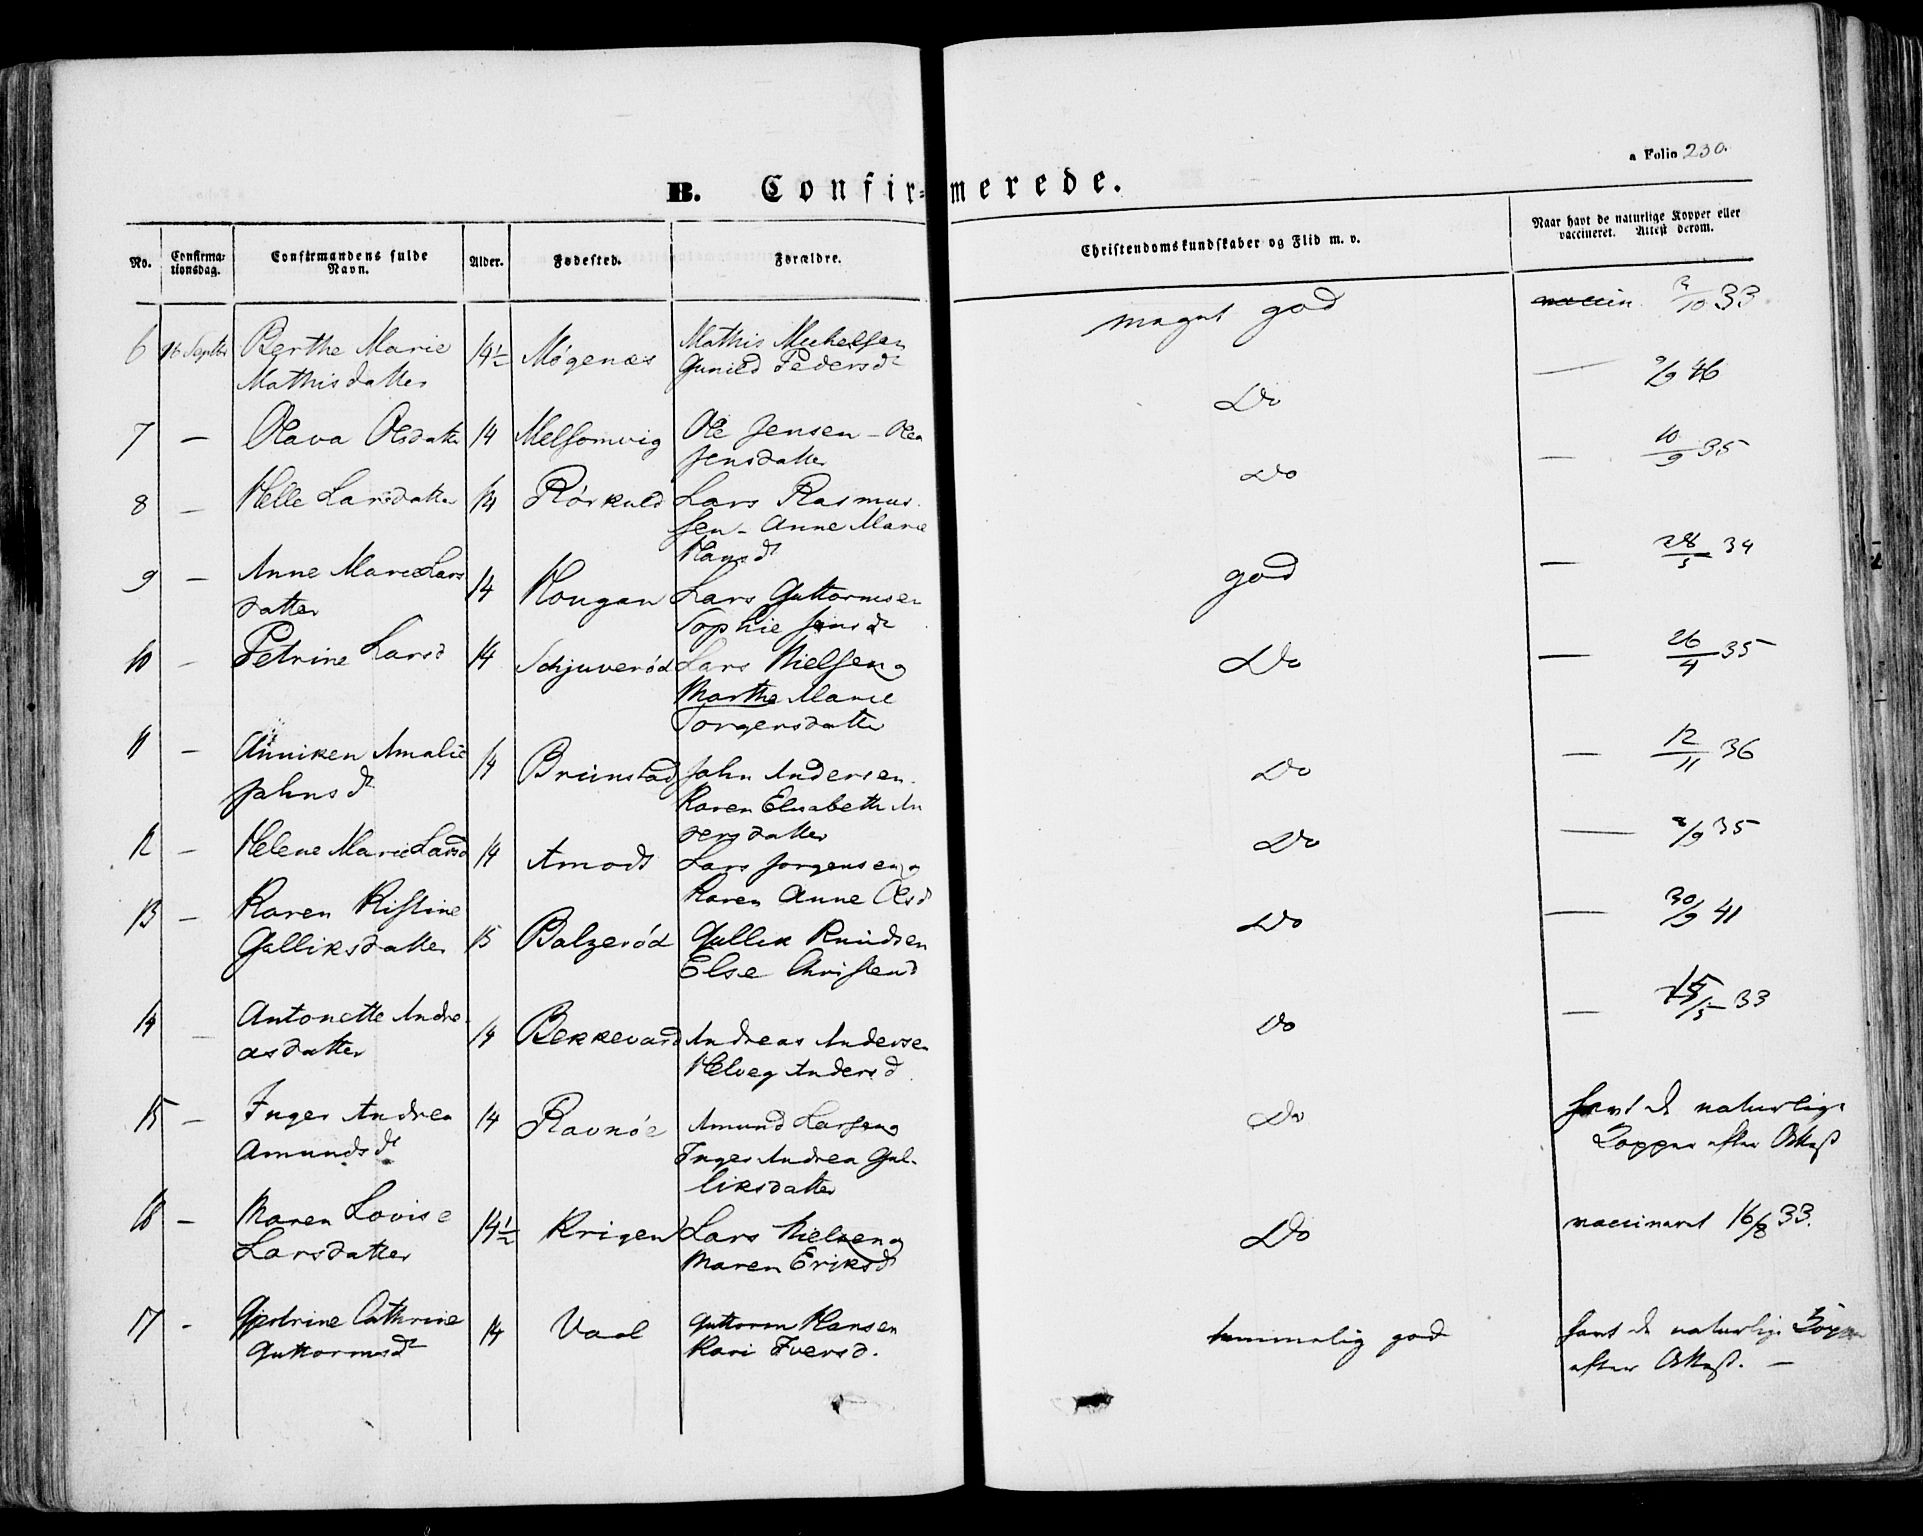 a Folio 230.
B. Confir=merede.
No.
Confirma-
tionsdag.
Confirmandens fulde
Navn.
Alder.
Fødested.
Forældre.
Christendomskundskaber og Flid m. v.
Naar havt de naturlige Kopper eller
vaccineret. Attest derom.
6 16 Septbr Berthe Marie 14½ Møgenæs Mathis Michelsen meget god vaccin. 10 33
Mathisdatter Gunild Pedersd
7 — Olava Olsdatter 14 Melsomvig Ole Jensen – Olea Do — 2/9 46
Jensdatter
8 — Helle Larsdatter 14 Rörkuld Lars Rasmus- Do — 10/9 35
sen – Anne Marie
Hansd
9 — Anne Marie Lars 14 Hougan Lars Guttormsen god — 28/5 34
datter Sophie Jensd
10 — Petrine Larsd 14 Schjuverød Lars Nielsen og Do — 26/4 35
Marthe Marie
Torgersdatter
11 — Anniken Amalie 14 Brunstad John Andersen Do — 12/11 36
Johnsd Karen Elisabeth An
dersdatter
12 — Helene Marie Larsd 14 Amodt Lars Jorgensen og Do — 2/9 35
Karen Anne Olsd
13 — Karen Kistine 15 Bolzerød Gullik Knudsen Do — 30/9 41
Gulliksdatter Else Christensd
14 — Antonette Andre- 14 Bekkevard Andreas Andersen Do — 15/5 33
asdatter Helveg Andersd
15 — Inger Andrea 14 Ravnøe Amund Larsen og Do havt de naturlige
Amundsd Inger Andrea Gul- Kopper efter Attest
liksdatter
16 — Maren Lovise 14½ Krigen Lars Nielsen og Do vaccineret 16/8 33.
Larsdatter Maren Eriksd
17 - Cathrine 14 Vaal Guttorm Hansen temmelig god havt de naturlige Kopper
Guttormsd Kari Iversd. efter Attest. —